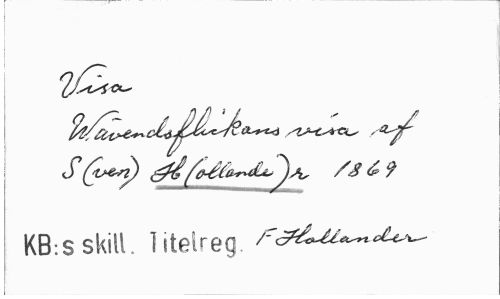 Visa
Wävendsflickans visa af
S(ven) H(ollande)r 1869
KB:s skill. Titelreg. F Hollander